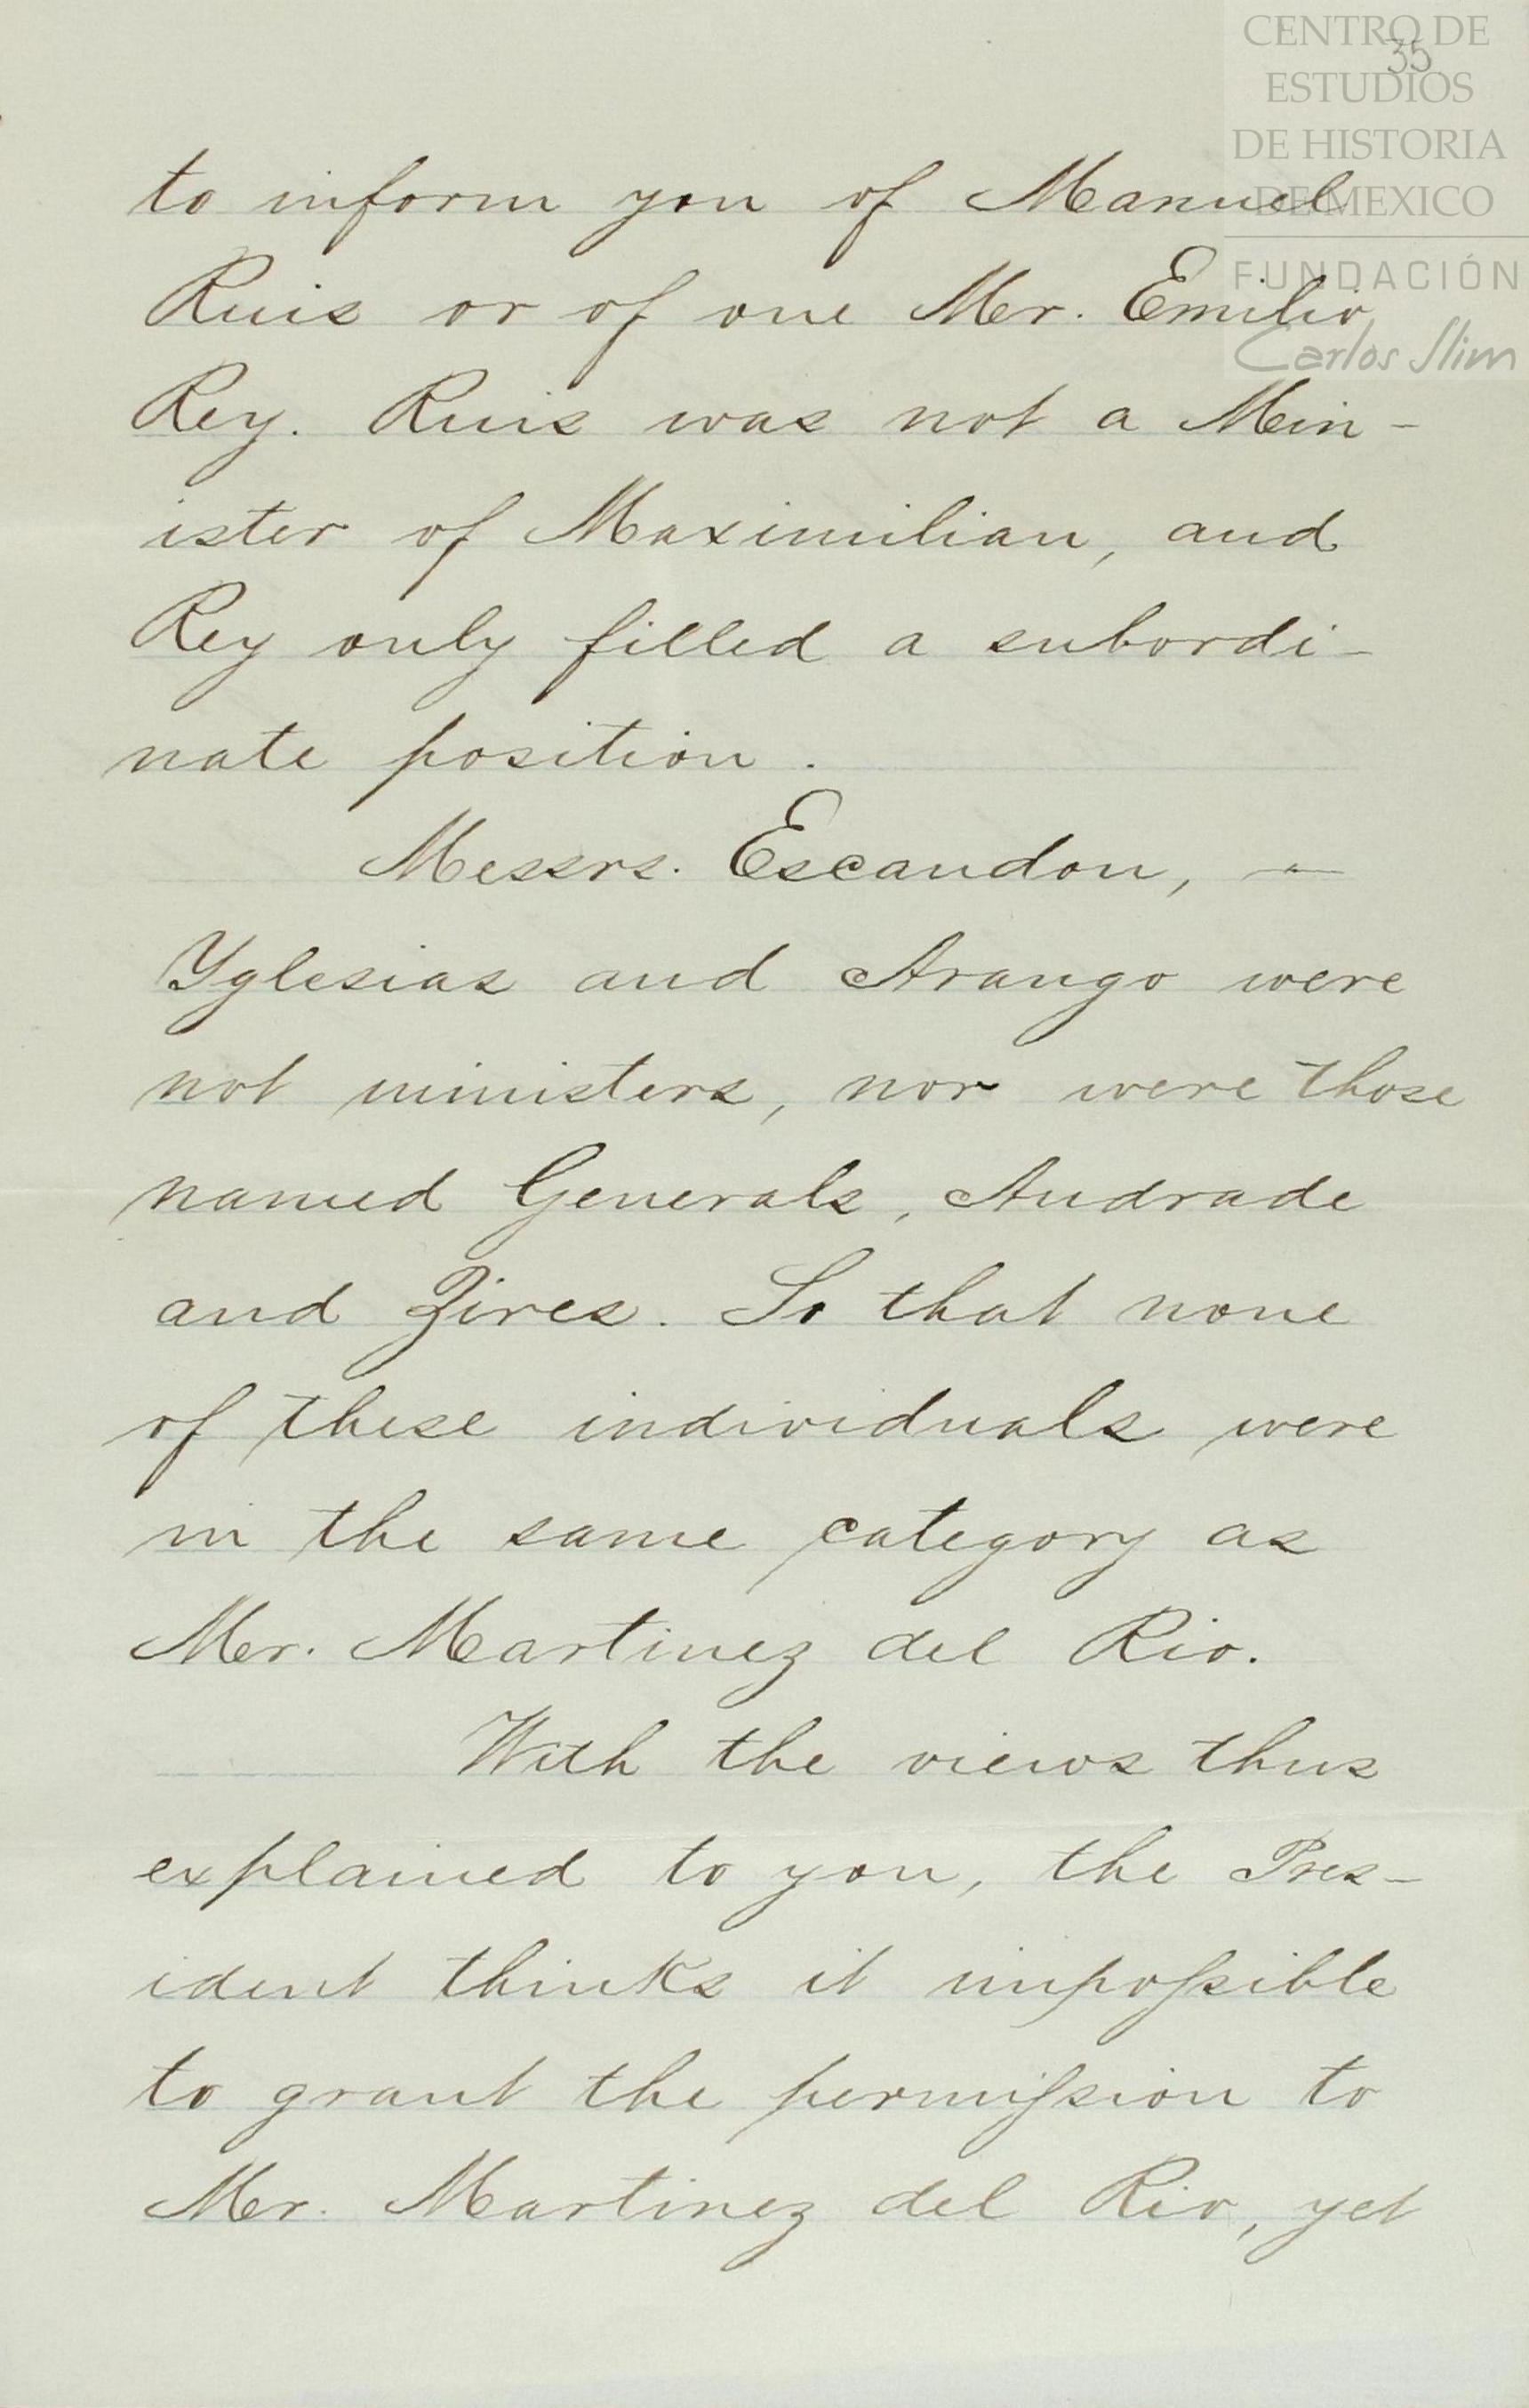 CENTRO DE
35
ESTUDIOS
DE HISTORIA
DE MEXICO
FUNDACIÓN
Carlos Slim
to inform you of Manuel
Ruis or of one Mr. Emilio
Rey. Ruis was not a Min-
ister of Maximilian, and
Rey only filled a subordi-
nate position.
Messrs. Escandon, -
Yglesias and Arango were
not ministers, nor were those
named Generals, Andrade
and Zires. So that none
of these individuals were
in the same category as
Mr. Martinez del Rio.
With the views thus
explained to you, the Pres-
ident thinks it impossible
to grant the permission to
Mr. Martinez del Rio, yet